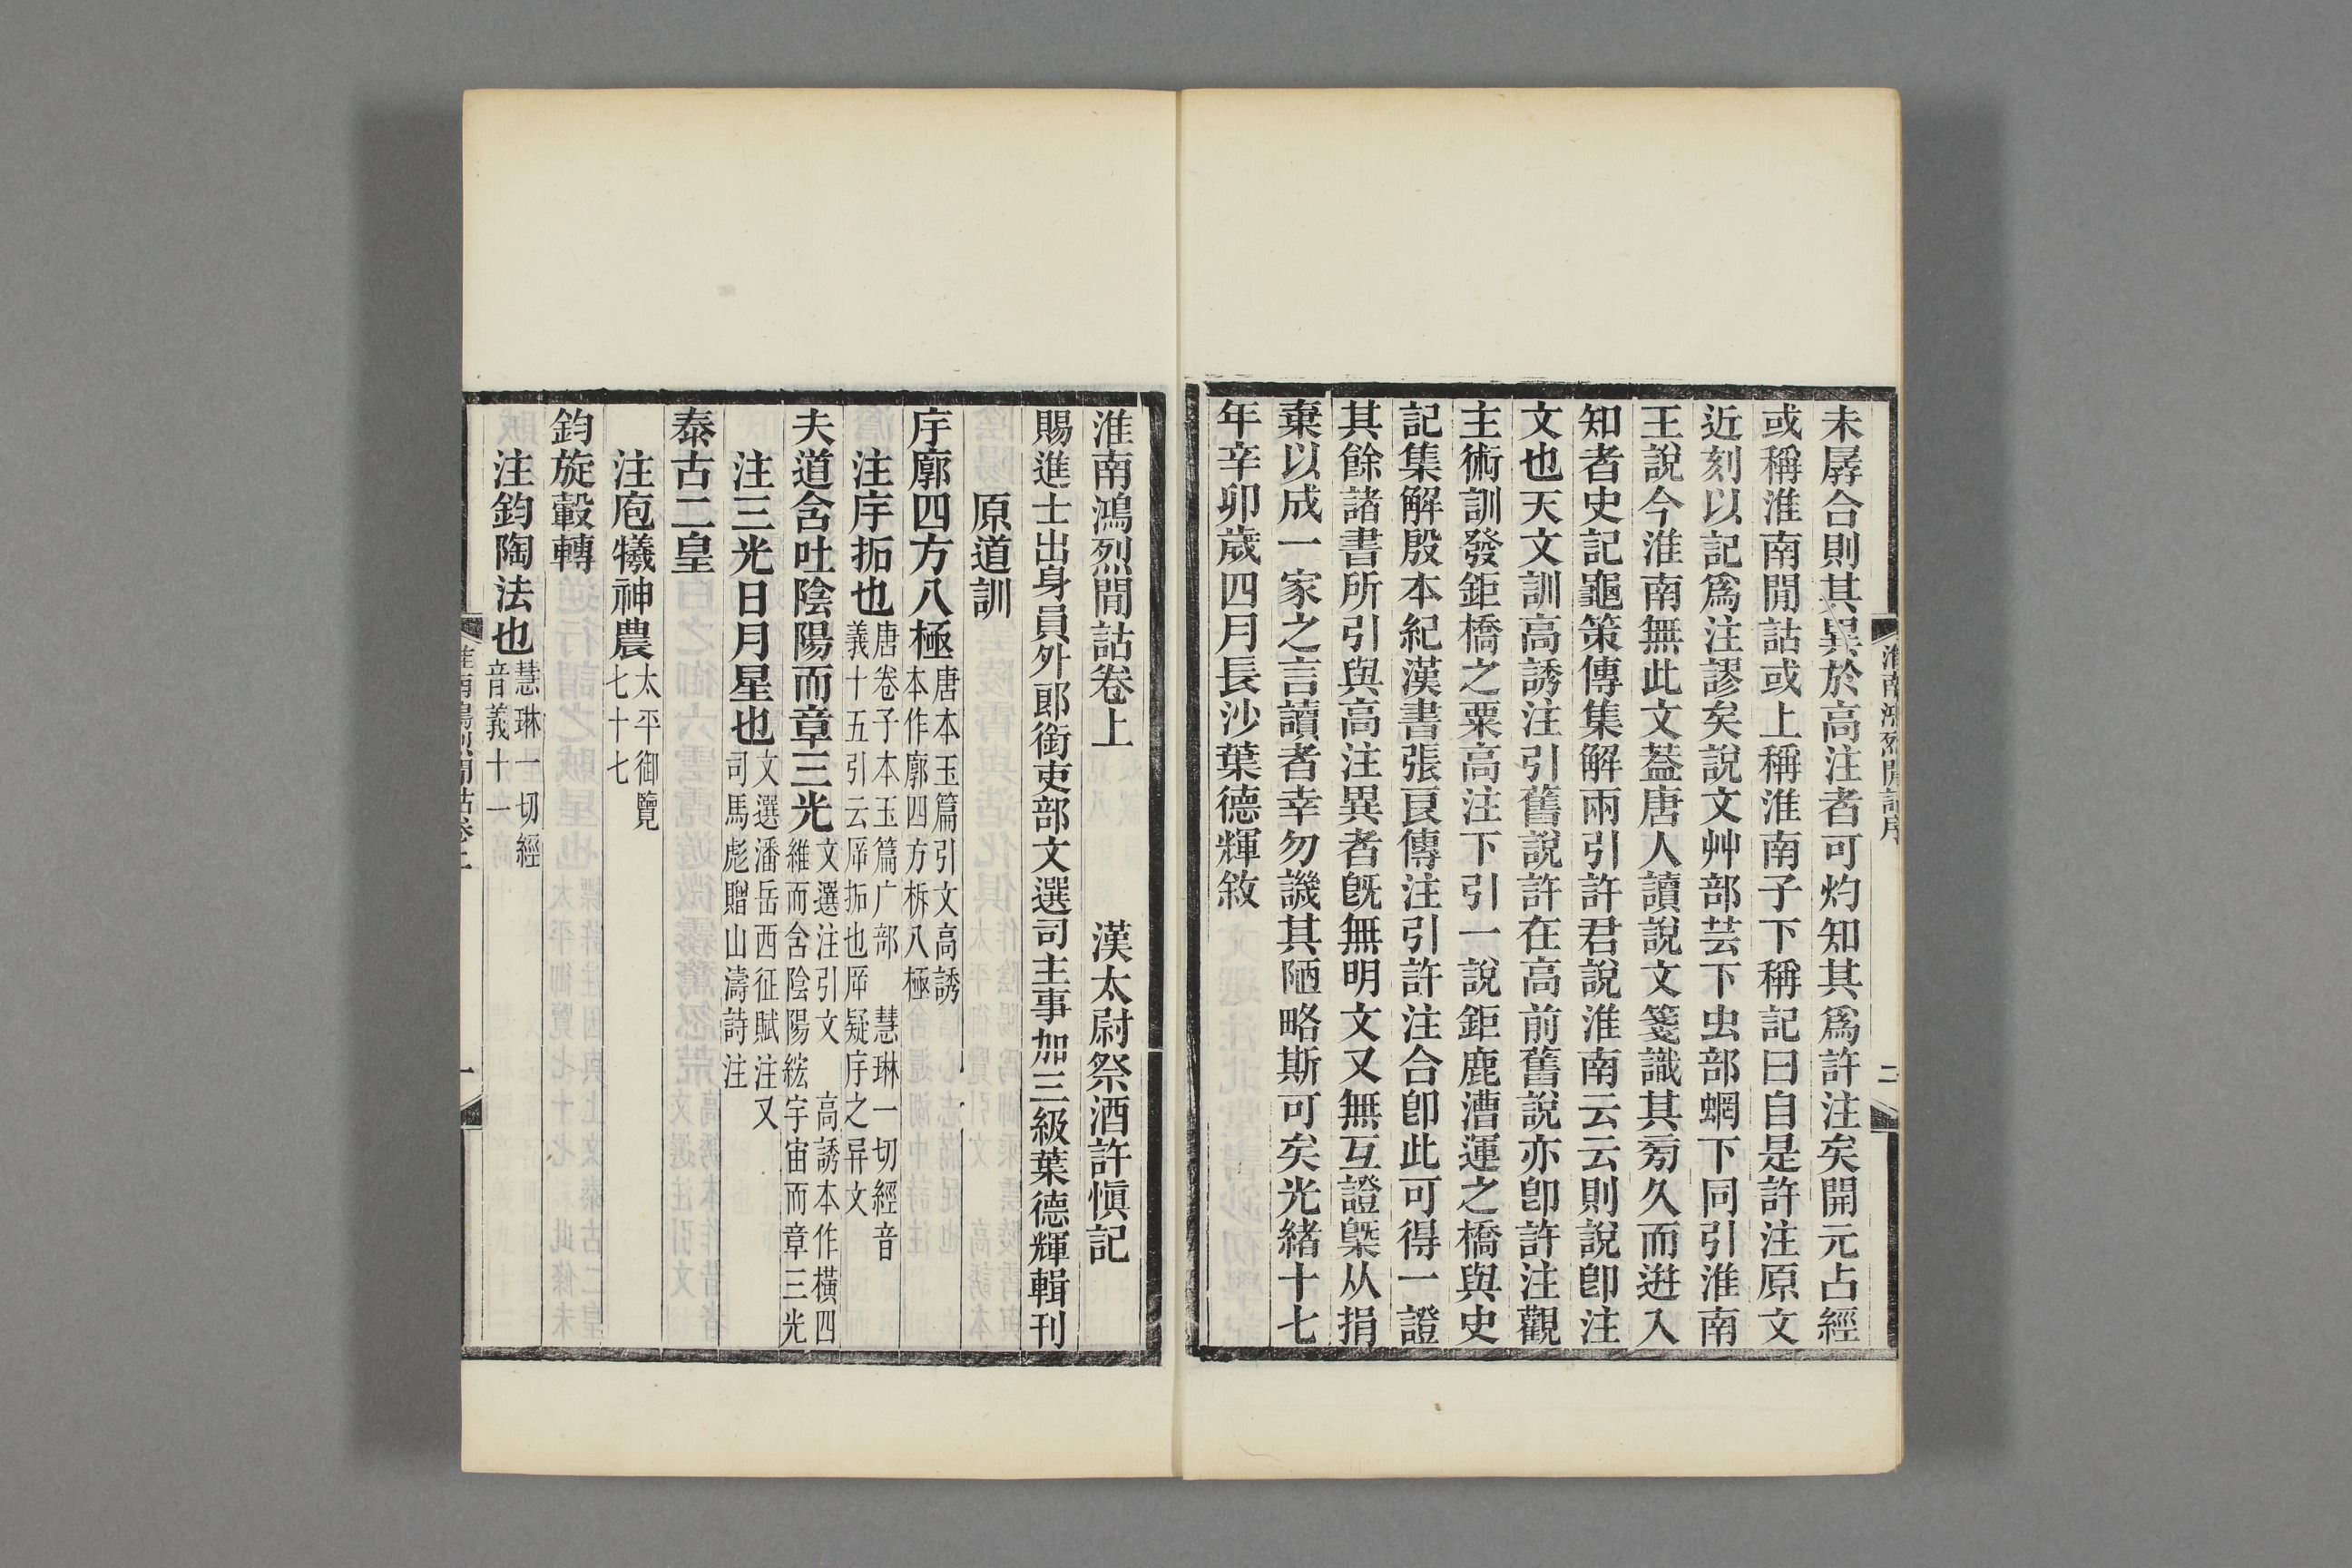 未羼合則其異於高注者可灼知其爲許注矣開元占經
或稱淮南閒詁或上稱淮南子下稱記曰自是許注原文
近刻以記爲注謬矣說文艸部芸下虫部蝄下同引淮南
王說今淮南無此文葢唐人讀說文箋識其旁久而迸入
知者史記龜策傳集解兩引許君說淮南云云則說卽注
文也天文訓高誘注引舊說許在高前舊說亦卽許注觀
主術訓發鉅橋之粟高注下引一說鉅鹿漕運之橋與史
記集解殷本紀漢書張良傳注引許注合卽此可得一證
其餘諸書所引與高注異者旣無明文又無互證槩从捐
棄以成一家之言讀者幸勿譏其陋略斯可矣光緒十七
年辛卯歲四月長沙葉德輝敘
淮南鴻烈閒詁序
二
淮南鴻烈閒詁卷上 漢太尉祭酒許愼記
賜進士出身員外郎銜吏部文選司主事加三級葉德輝輯刊
原道訓
㡯廓四方八極
唐本玉篇引文高誘
本作廓四方柝八極
注㡯拓也
唐卷子本玉篇广部 慧琳一切經音
義十五引云厈拓也厈疑㡯之異文
夫道含吐陰陽而章三光
文選注引文 高誘本作橫四
維而含陰陽紘宇宙而章三光
注三光日月星也
文選潘岳西征賦注又
司馬彪贈山濤詩注
泰古二皇
注庖犧神農
太平御覽
七十七
鈞旋轂轉
注鈞陶法也
慧琳一切經
音義十一
淮南鴻烈閒詁卷上
一